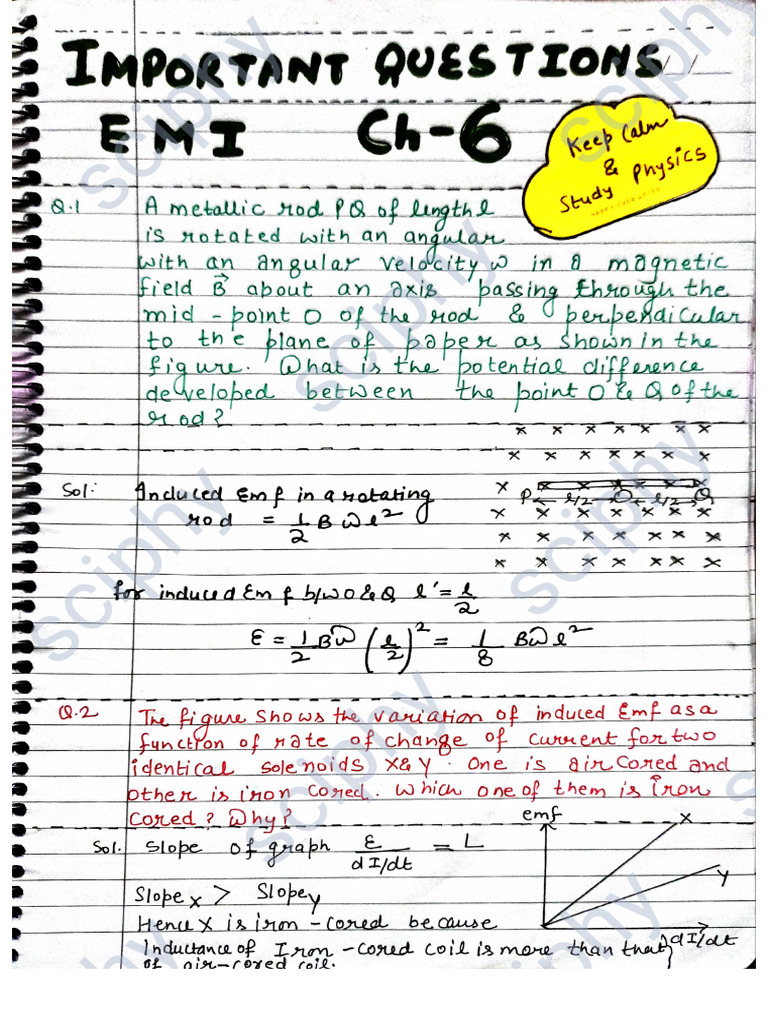 IMPORTANT QUESTIONS
EMI Ch-6
Keep Calm
&
Study Physics
Q.1 A metallic rod PQ of length l
is rotated with an angular
with an angular velocity ω in a magnetic
field B⃗ about an axis passing through the
mid-point O of the rod & perpendicular
to the plane of paper as shown in the
figure. What is the potential difference
developed between the point O & Q of the
rod?
x x x x x x
x x x x x x
Sol: Induced Emf in a rotating
rod = 1/2 B ω l²
x x x x x x
P ← l/2 → O ← l/2 → Q
x x x x x x x
x x x x x x
x x x x x x
for induced Emf b/w O & Q l' = l/2
ε = 1/2 Bω (l/2)² = 1/8 Bωl²
Q.2 The figure shows the variation of induced Emf as a
function of rate of change of current for two
identical solenoids X & Y. One is air cored and
other is iron cored. Which one of them is iron
cored? Why?
emf
X
Y
dI/dt
Sol. Slope of graph ε/dI/dt = L
Slope x > Slope y
Hence X is iron-cored because
Inductance of Iron-cored coil is more than that
of air-cored coil.
sciphy
sciphy
sciphy
sciphy
sciphy
sciphy
sciphy
sciphy